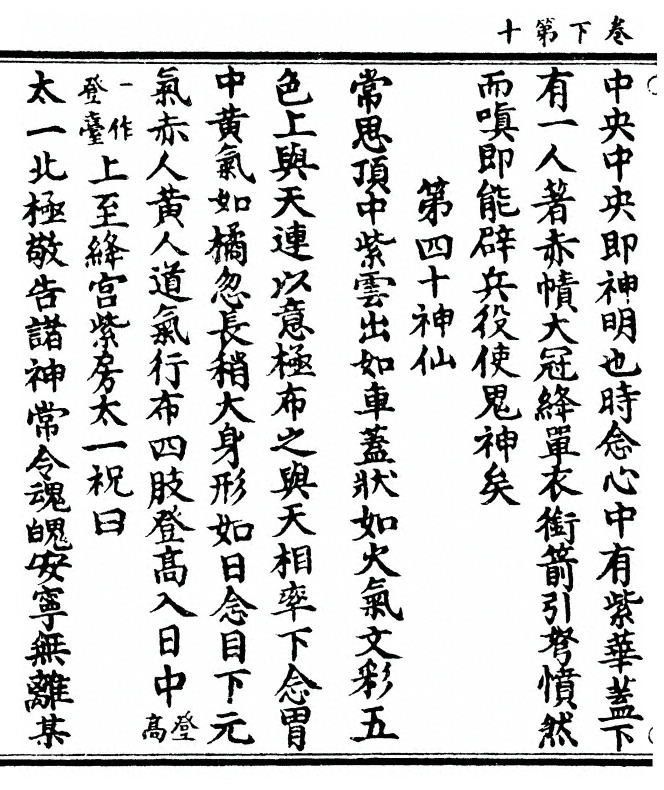 卷下第十
中央中央即神明也時念心中有紫華蓋下
有一人著赤幘大冠絳單衣銜箭引弩憤然
而嗔即能辟兵役使鬼神矣
第四十神仙
常思頂中紫雲出如車蓋狀如火氣文彩五
色上與天連以意極布之與天相率下念胃
中黃氣如橘忽長稍大身形如日念目下元
氣赤人黃人道氣行布四肢登高入日中登高
一作登臺上至絳宮紫房太一祝曰
太一北極敬告諸神常令魂魄安寧無離某